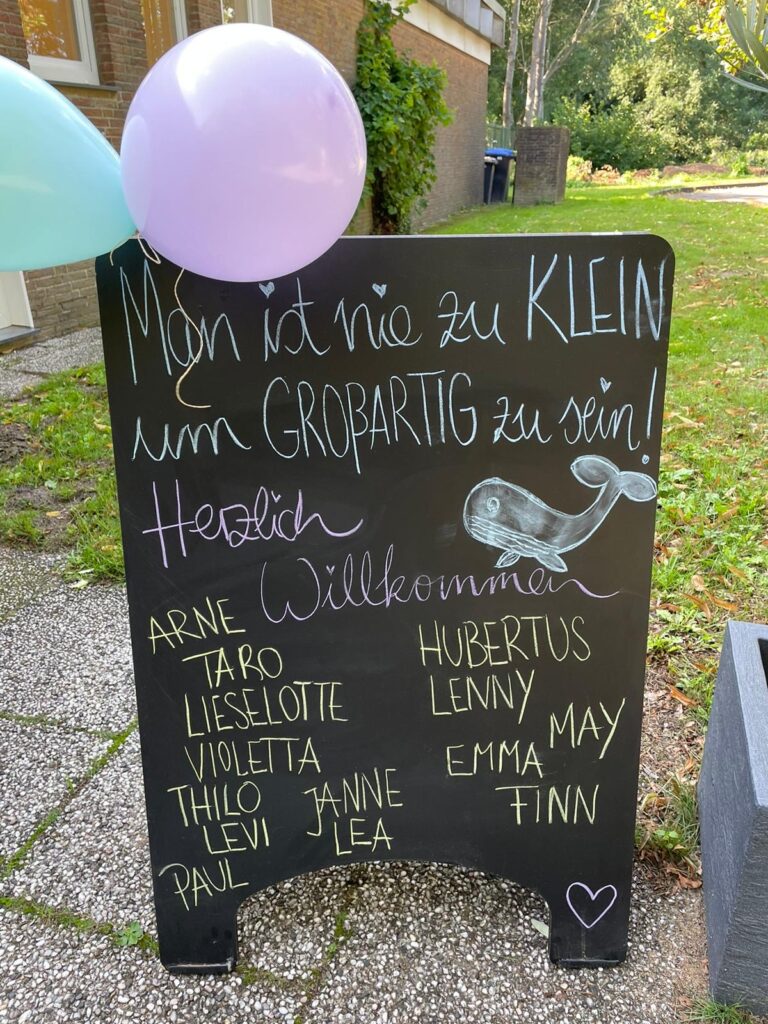 Man ist nie zu KLEIN
um GROßARTIG zu sein!
Herzlich
Willkommen
ARNE
TARO
LIESELOTTE
VIOLETTA
THILO
LEVI
PAUL
JANNE
LEA
HUBERTUS
LENNY
MAY
EMMA
FINN